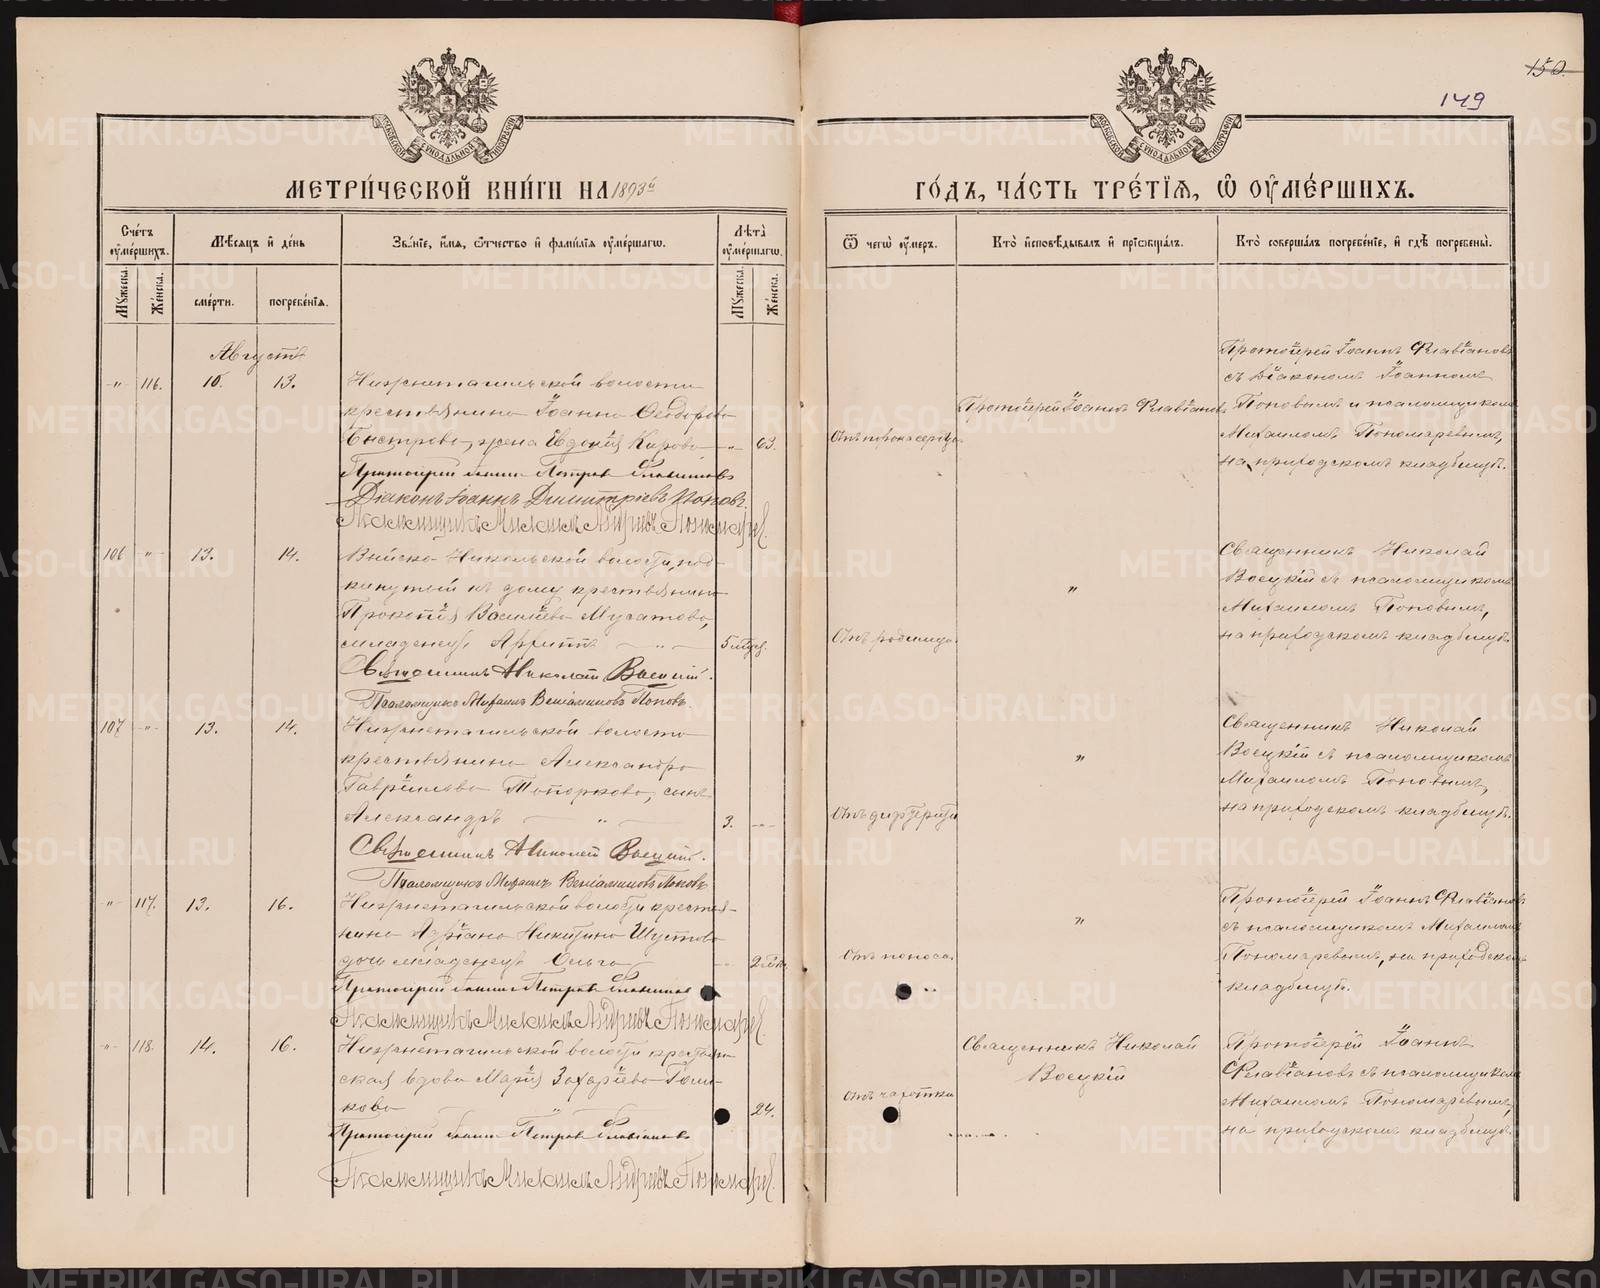 150.
149
МОСКОВСКОЙ СѴНОДАЛЬНОЙ ТИПОГРАФІИ
МОСКОВСКОЙ СѴНОДАЛЬНОЙ ТИПОГРАФІИ
МЕТРИ́ЧЕСКОЙ КНИ́ГИ НА 1893й
ГО́ДЪ, ЧА́СТЬ ТРЕ́ТЇѦ, Ѿ ОУ҆МЕ́РШИХЪ.
Сче́тъ оу҆ме́ршихъ.
Мѣ́сѧцъ и҆ де́нь
Зва́нїе, и҆́мѧ, ѻ҆́тчество и҆ фами́лїѧ оу҆ме́ршагѡ.
Лѣта̀ оу҆ме́ршагѡ.
Ѿ чегѡ̀ оу҆́меръ.
Кто̀ и҆сповѣ́дывалъ и҆ прїѡбща́лъ.
Кто̀ соверша́лъ погребе́нїе, и҆ гдѣ̀ погребены̀.
Мꙋ́жеска.
Же́нска.
сме́рти.
погребе́нїѧ.
Мꙋ́жеска.
Же́нска.
Августъ
-"- 116. 10. 13. Нижнетагильской волости
крестьянина Іоанна Ѳеодорова
Быстрова, жена Евдокія Карпова -"- 63.
Протоіерей Іоаннъ Петровъ Флавіановъ
Діаконъ Іоаннъ Димитріевъ Поповъ.
Псаломщикъ Михаилъ Андреевъ Пономаревъ.
Отъ порока сердца.
Протоіерей Іоаннъ Флавіановъ
Протоіерей Іоаннъ Флавіановъ
съ діакономъ Іоанномъ
Поповымъ и псаломщикомъ
Михаиломъ Пономаревымъ,
на приходскомъ кладбищѣ.
106 -"- 13. 14. Выйско-Никольской волости, под-
кинутый къ дому крестьянина
Прокопія Васильева Мусатова,
младенецъ Архиппъ - " - 5 мѣсяц.
Священникъ Николай Воецкій.
Псаломщикъ Михаилъ Веніаминовъ Поповъ.
Отъ родимца.
"
Священникъ Николай
Воецкій съ псаломщикомъ
Михаиломъ Поповымъ,
на приходскомъ кладбищѣ.
107 -"- 13. 14. Нижнетагильской волости
крестьянина Александра
Гавріилова Топоркова, сынъ
Александръ - " - 3. -"-
Священникъ Николай Воецкій.
Псаломщикъ Михаилъ Веніаминовъ Поповъ
Отъ дифтерита
"
Священникъ Николай
Воецкій съ псаломщикомъ
Михаиломъ Поповымъ,
на приходскомъ кладбищѣ.
-"- 117. 13. 16. Нижнетагильской волости крестья-
нина Адріана Никитина Шустова
дочь младенецъ Ольга
Протоіерей Іоаннъ Петровъ Флавіановъ
Псаломщикъ Михаилъ Андреевъ Пономаревъ.
Отъ поноса.
"
Протоіерей Іоаннъ Флавіановъ
съ псаломщикомъ Михаиломъ
Пономаревымъ, на приходскомъ
кладбищѣ.
-"- 118. 14. 16. Нижнетагильской волости крестьян-
ская вдова Марія Захаріева
кова " 24.
Протоіерей Іоаннъ Петровъ Флавіановъ
Псаломщикъ Михаилъ Андреевъ Пономаревъ.
Отъ чахотки
Священникъ Николай
Воецкій
Протоіерей Іоаннъ
Флавіановъ съ псаломщикомъ
Михаиломъ Пономаревымъ,
на приходскомъ кладбищѣ.
METRIKI.GASO-URAL.RU